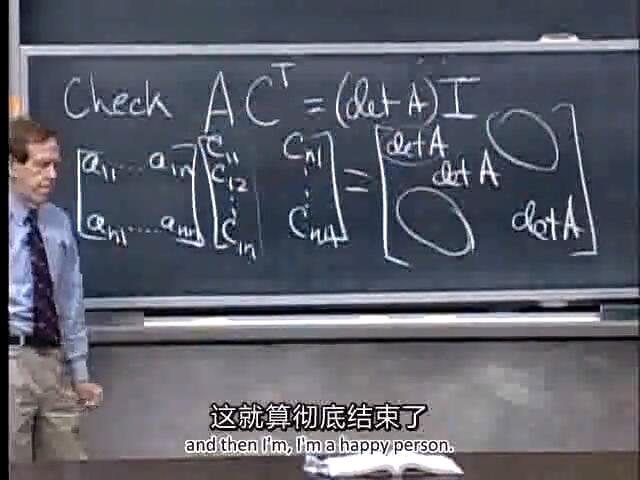 Check A Cᵀ = (det A) I
[a₁₁ ... a₁ₙ aₙ₁ .... aₙₙ] [C₁₁ C₁₂ ⋮ C₁ₙ Cₙ₁ ⋮ Cₙₙ] = [det A det A det A]
这就算彻底结束了
and then I'm, I'm a happy person.